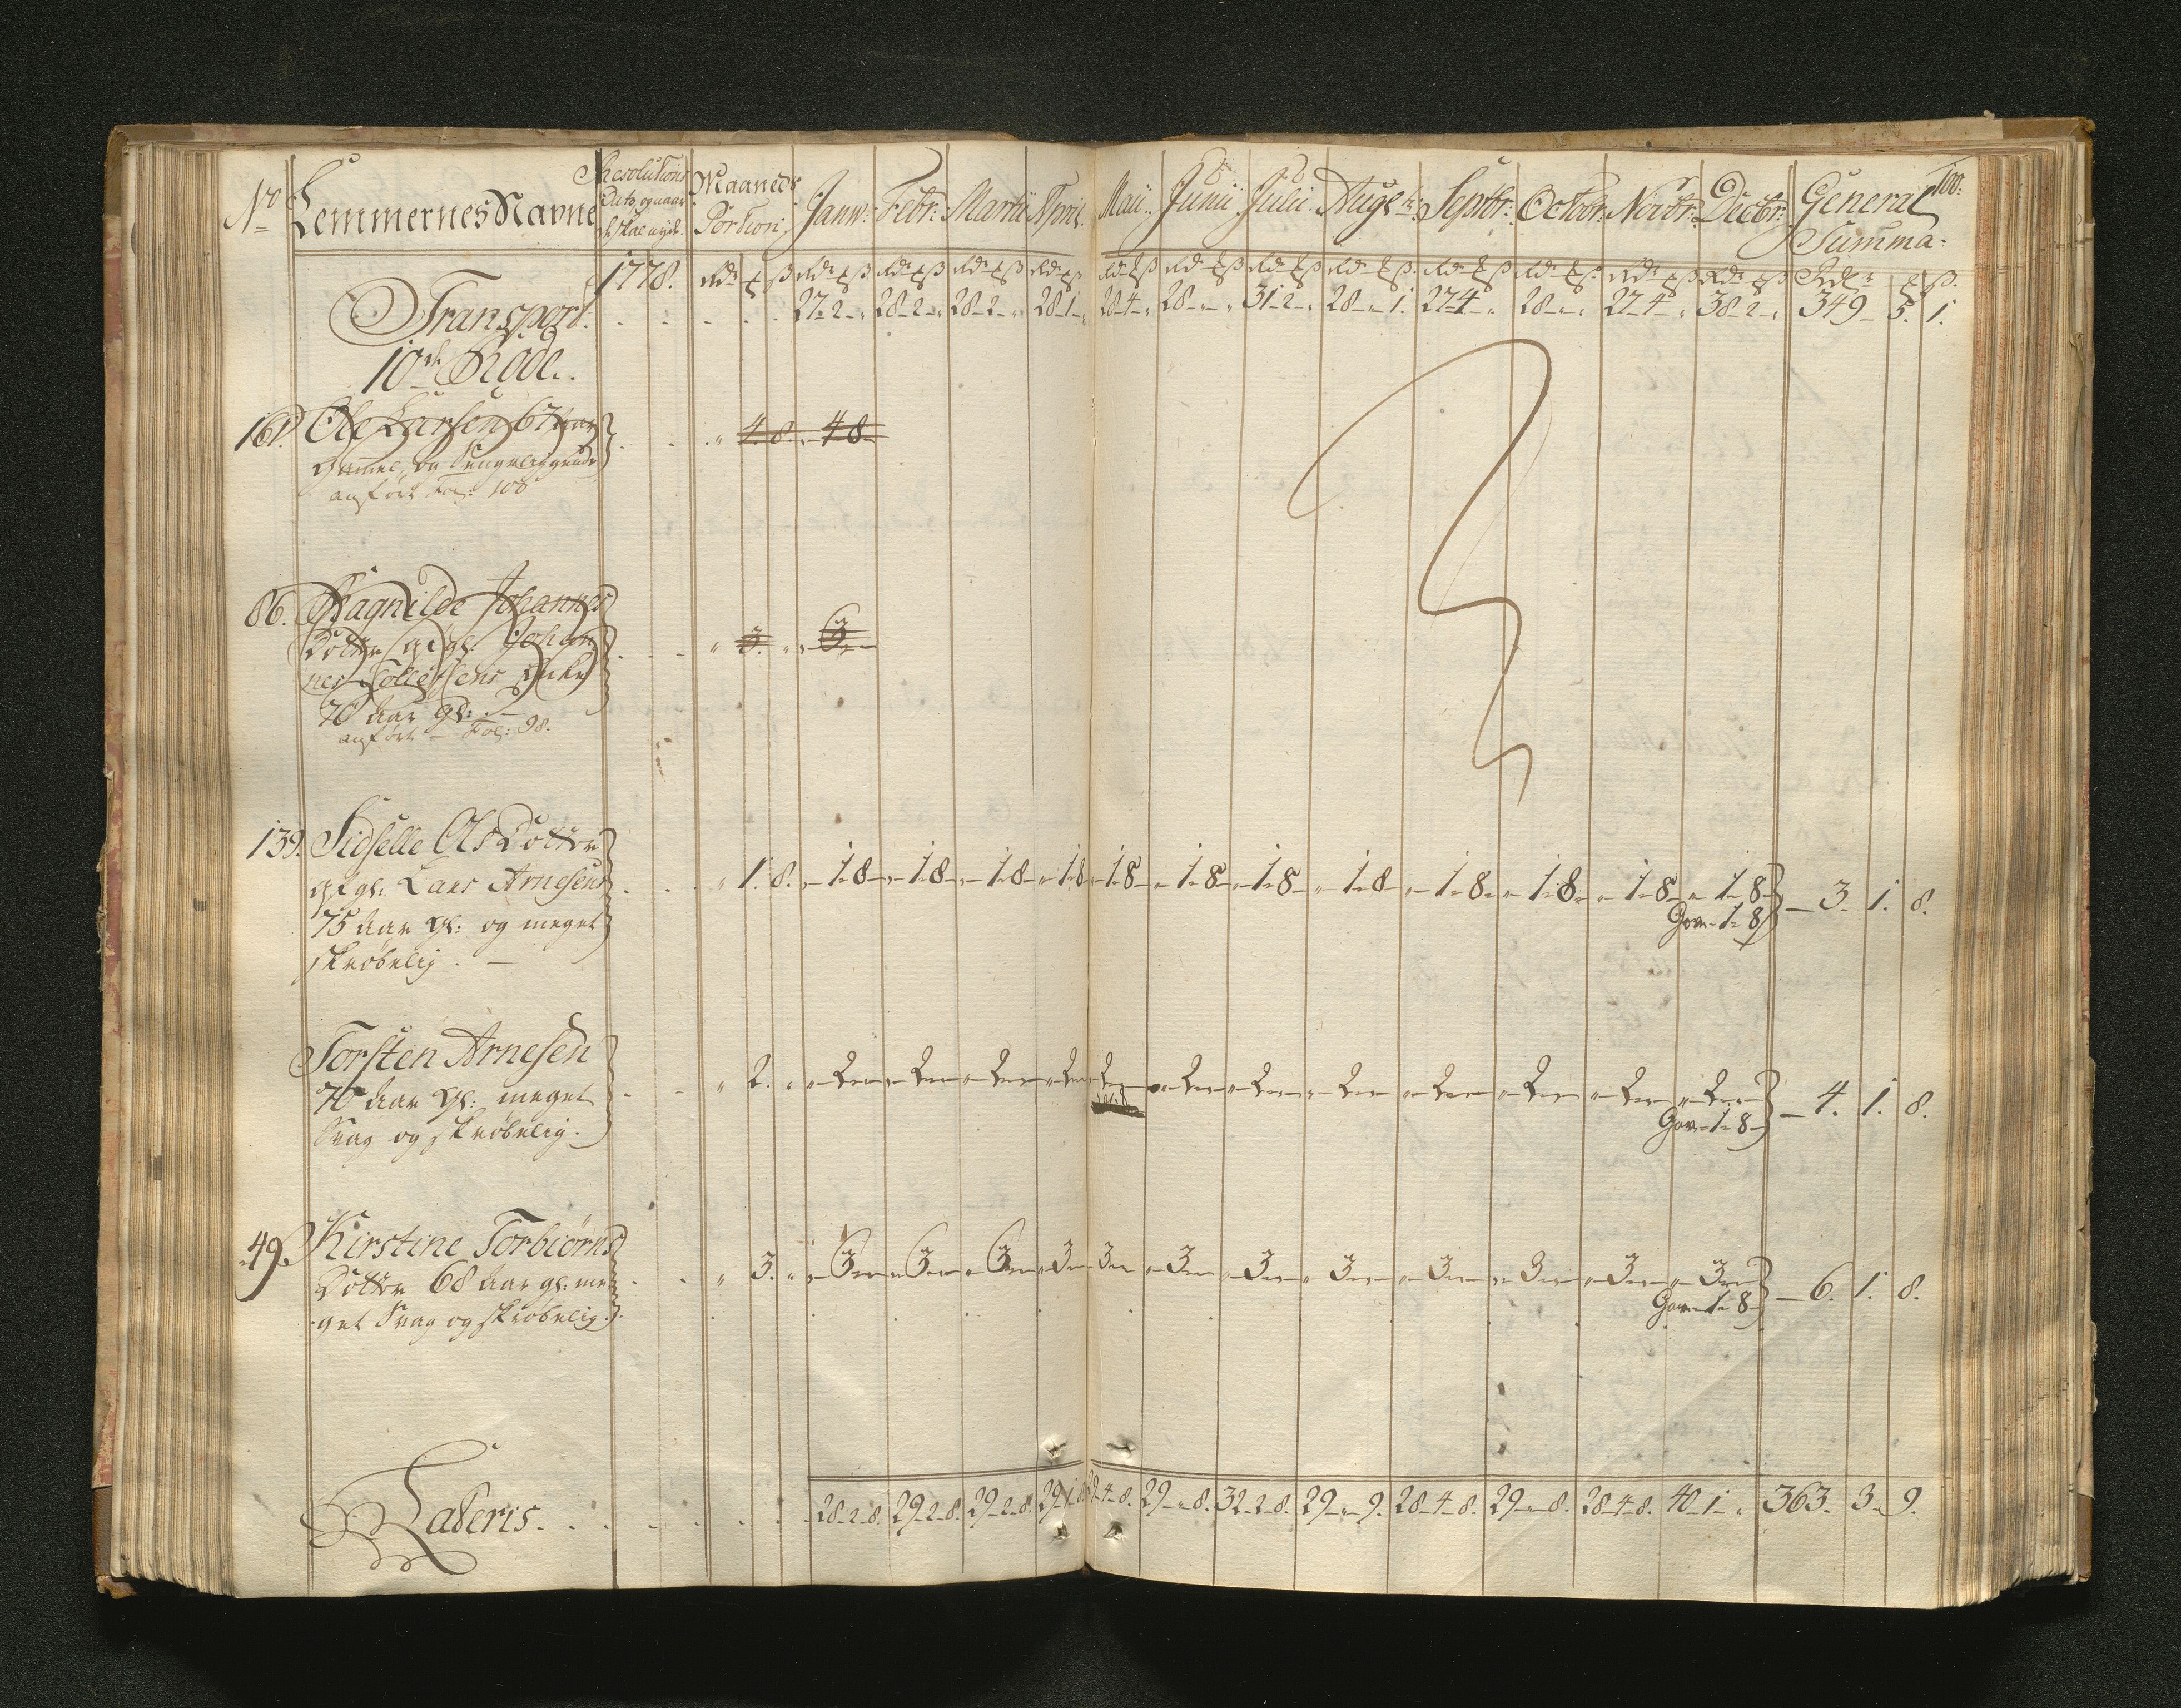 100.
No Lemmernes Navne Resolutions Dato, og naar de skal nyde. Maaneds Portion, Janur: Febr: Martii April. Maii. Junii Julii. Augst: Septbr: Octobr: Novbr: Decbr: General Summa.
1778.
Transport. . . . . . 27-2-" 28-2-" 28-2-" 28-1-" 28-4-" 28-"-" 31-2-" 28-"-1. 27-4-" 28-"-" 27-4-" 38-2-" 349-5. 1.
10de Rode.
161. Ole Larsen 67 aar . . " 4. 8. " 4 8
Gammel, og Sengeliggende
anført Fol: 108
86. Ragnilde Johannes
Dotter / afgl. Johan . . " 3. " " 3.
nes Tollefsens Enke
70 aar gl: -
anført - Fol: 98.
139. Sidselle Ols Dotter
afgl. Lars Arnesens . . " 1. 8. "-1-8 "-1-8 "-1-8 "-1-8 "-1-8 "-1-8 "-1-8 "-1-8 "-1-8 "-1-8 "-1-8 "-1-8 - 3. 1. 8.
Gave-1-8
75 aar gl: og meget
skrøbelig. -
Torsten Arnesen
70 aar gl: meget . . " 2. " "-2-" "-2-" "-2-" "-2-" "-2-" "-2-" "-2-" "-2-" "-2-" "-2-" "-2-" "-2-" - 4. 1. 8.
Gave-1-8
Svag og skrøbelig.
49. Kirstine Torbiørns
Dotter 68 aar gl: me . . " 3. " "-3-" "-3-" "-3-" "-3-" "-3-" "-3-" "-3-" "-3-" "-3-" "-3-" "-3-" "-3-" - 6. 1. 8.
Gave-1-8
get Svag og skrøbelig.
Lateris. . . . . . 28-2-8. 29-2-8. 29-2-8. 29-1-8 29-4-8. 29-"-8. 32-2-8. 29-"-9. 28-4-8. 29-"-8. 28-4-8. 40-1-" 363-3-9.